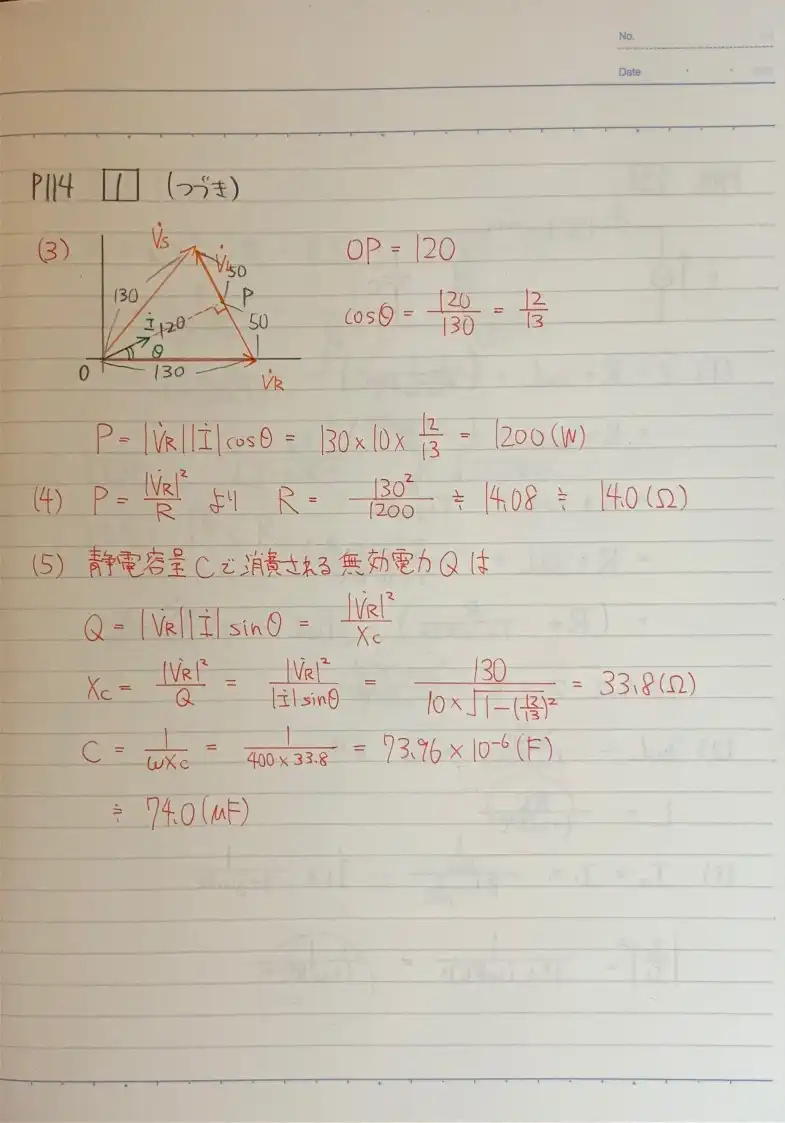 No.
Date
P114 1 (つづき)
(3) V̇s V̇L 50 P 50 130 İ 120 θ 0 130 V̇R
OP = 120
cosθ = 120/130 = 12/13
P = |V̇R||İ|cosθ = 130×10×12/13 = 1200(W)
(4) P = |V̇R|²/R より R = 130²/1200 ≒ 14.08 ≒ 14.0(Ω)
(5) 静電容量Cで消費される無効電力Qは
Q = |V̇R||İ|sinθ = |V̇R|²/Xc
Xc = |V̇R|²/Q = |V̇R|²/|İ|sinθ = 130/10×√1-(12/13)² = 33.8(Ω)
C = 1/ωXc = 1/400×33.8 = 73.96×10⁻⁶(F)
≒ 74.0(μF)